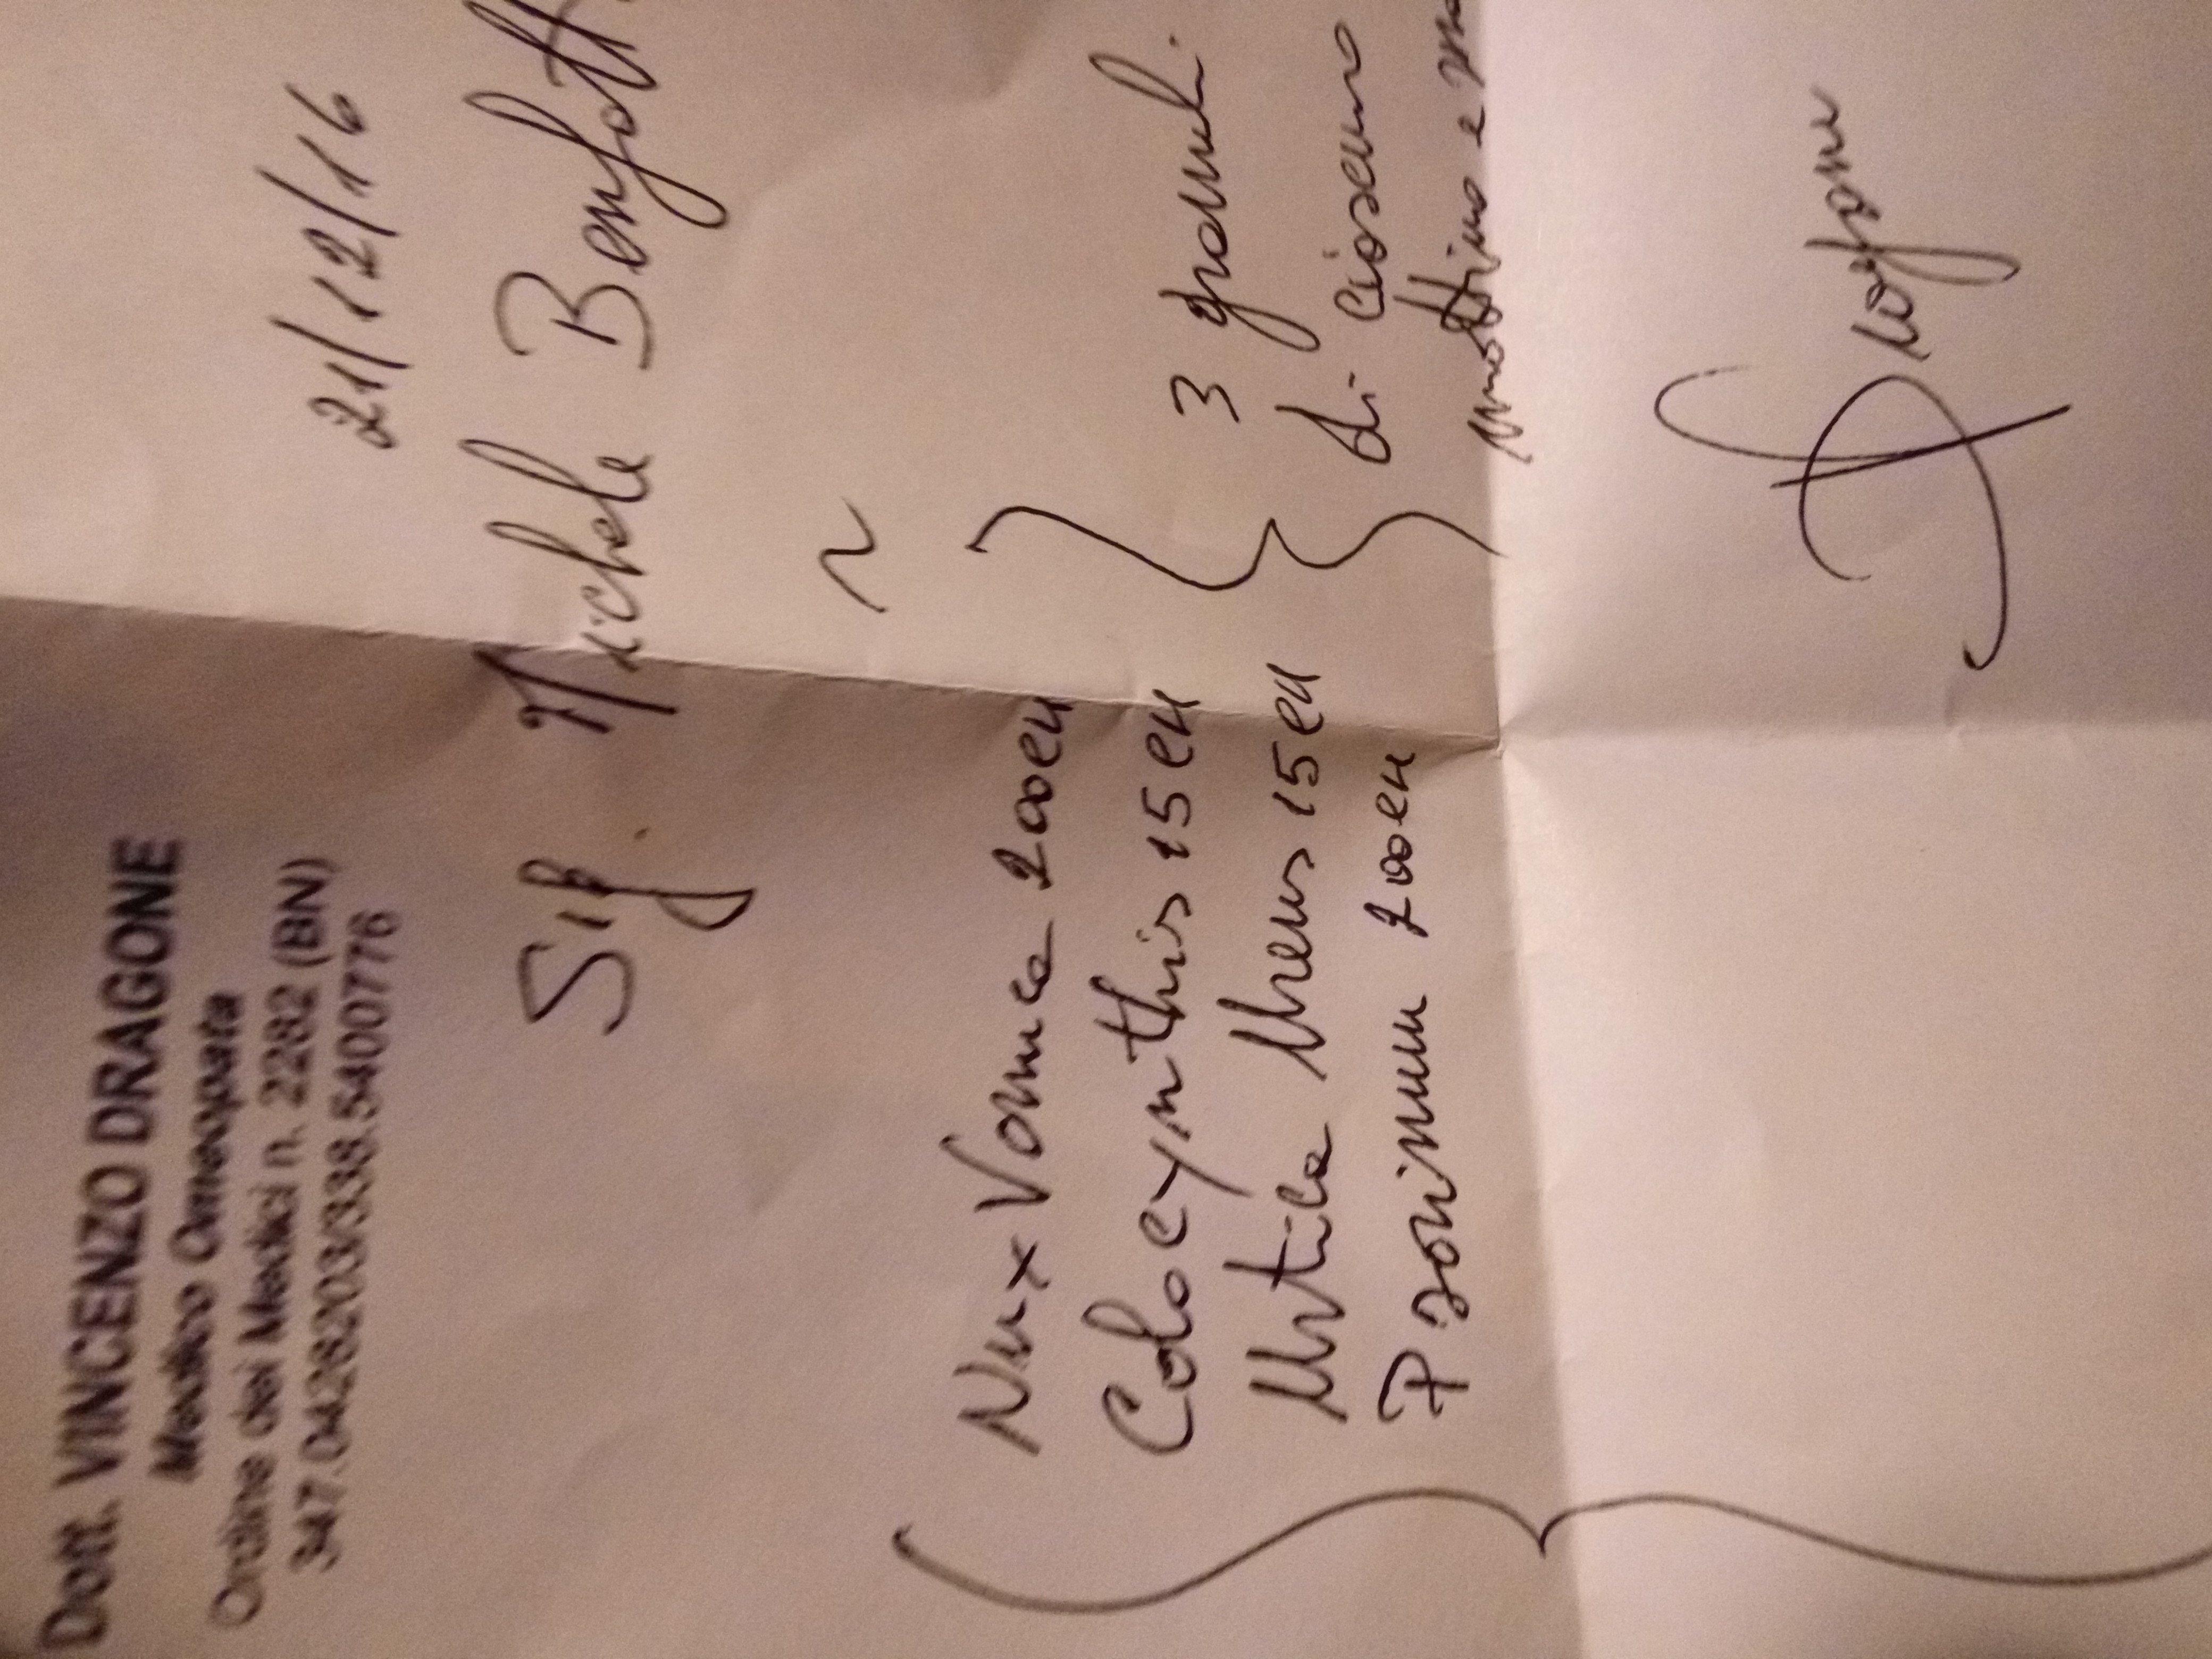 Dott. VINCENZO DRAGONE
Medico Omeopata
Ordine dei Medici n. 2282 (BN)
347.0428203/338.5400776
21/12/16
Sig. Michele
~
Nux Vomica 200CH
Colocynthis 15CH
Urtica Urens 15CH
Psorinum 200CH
3 granuli
di ciascuno
mattino e
Dragone